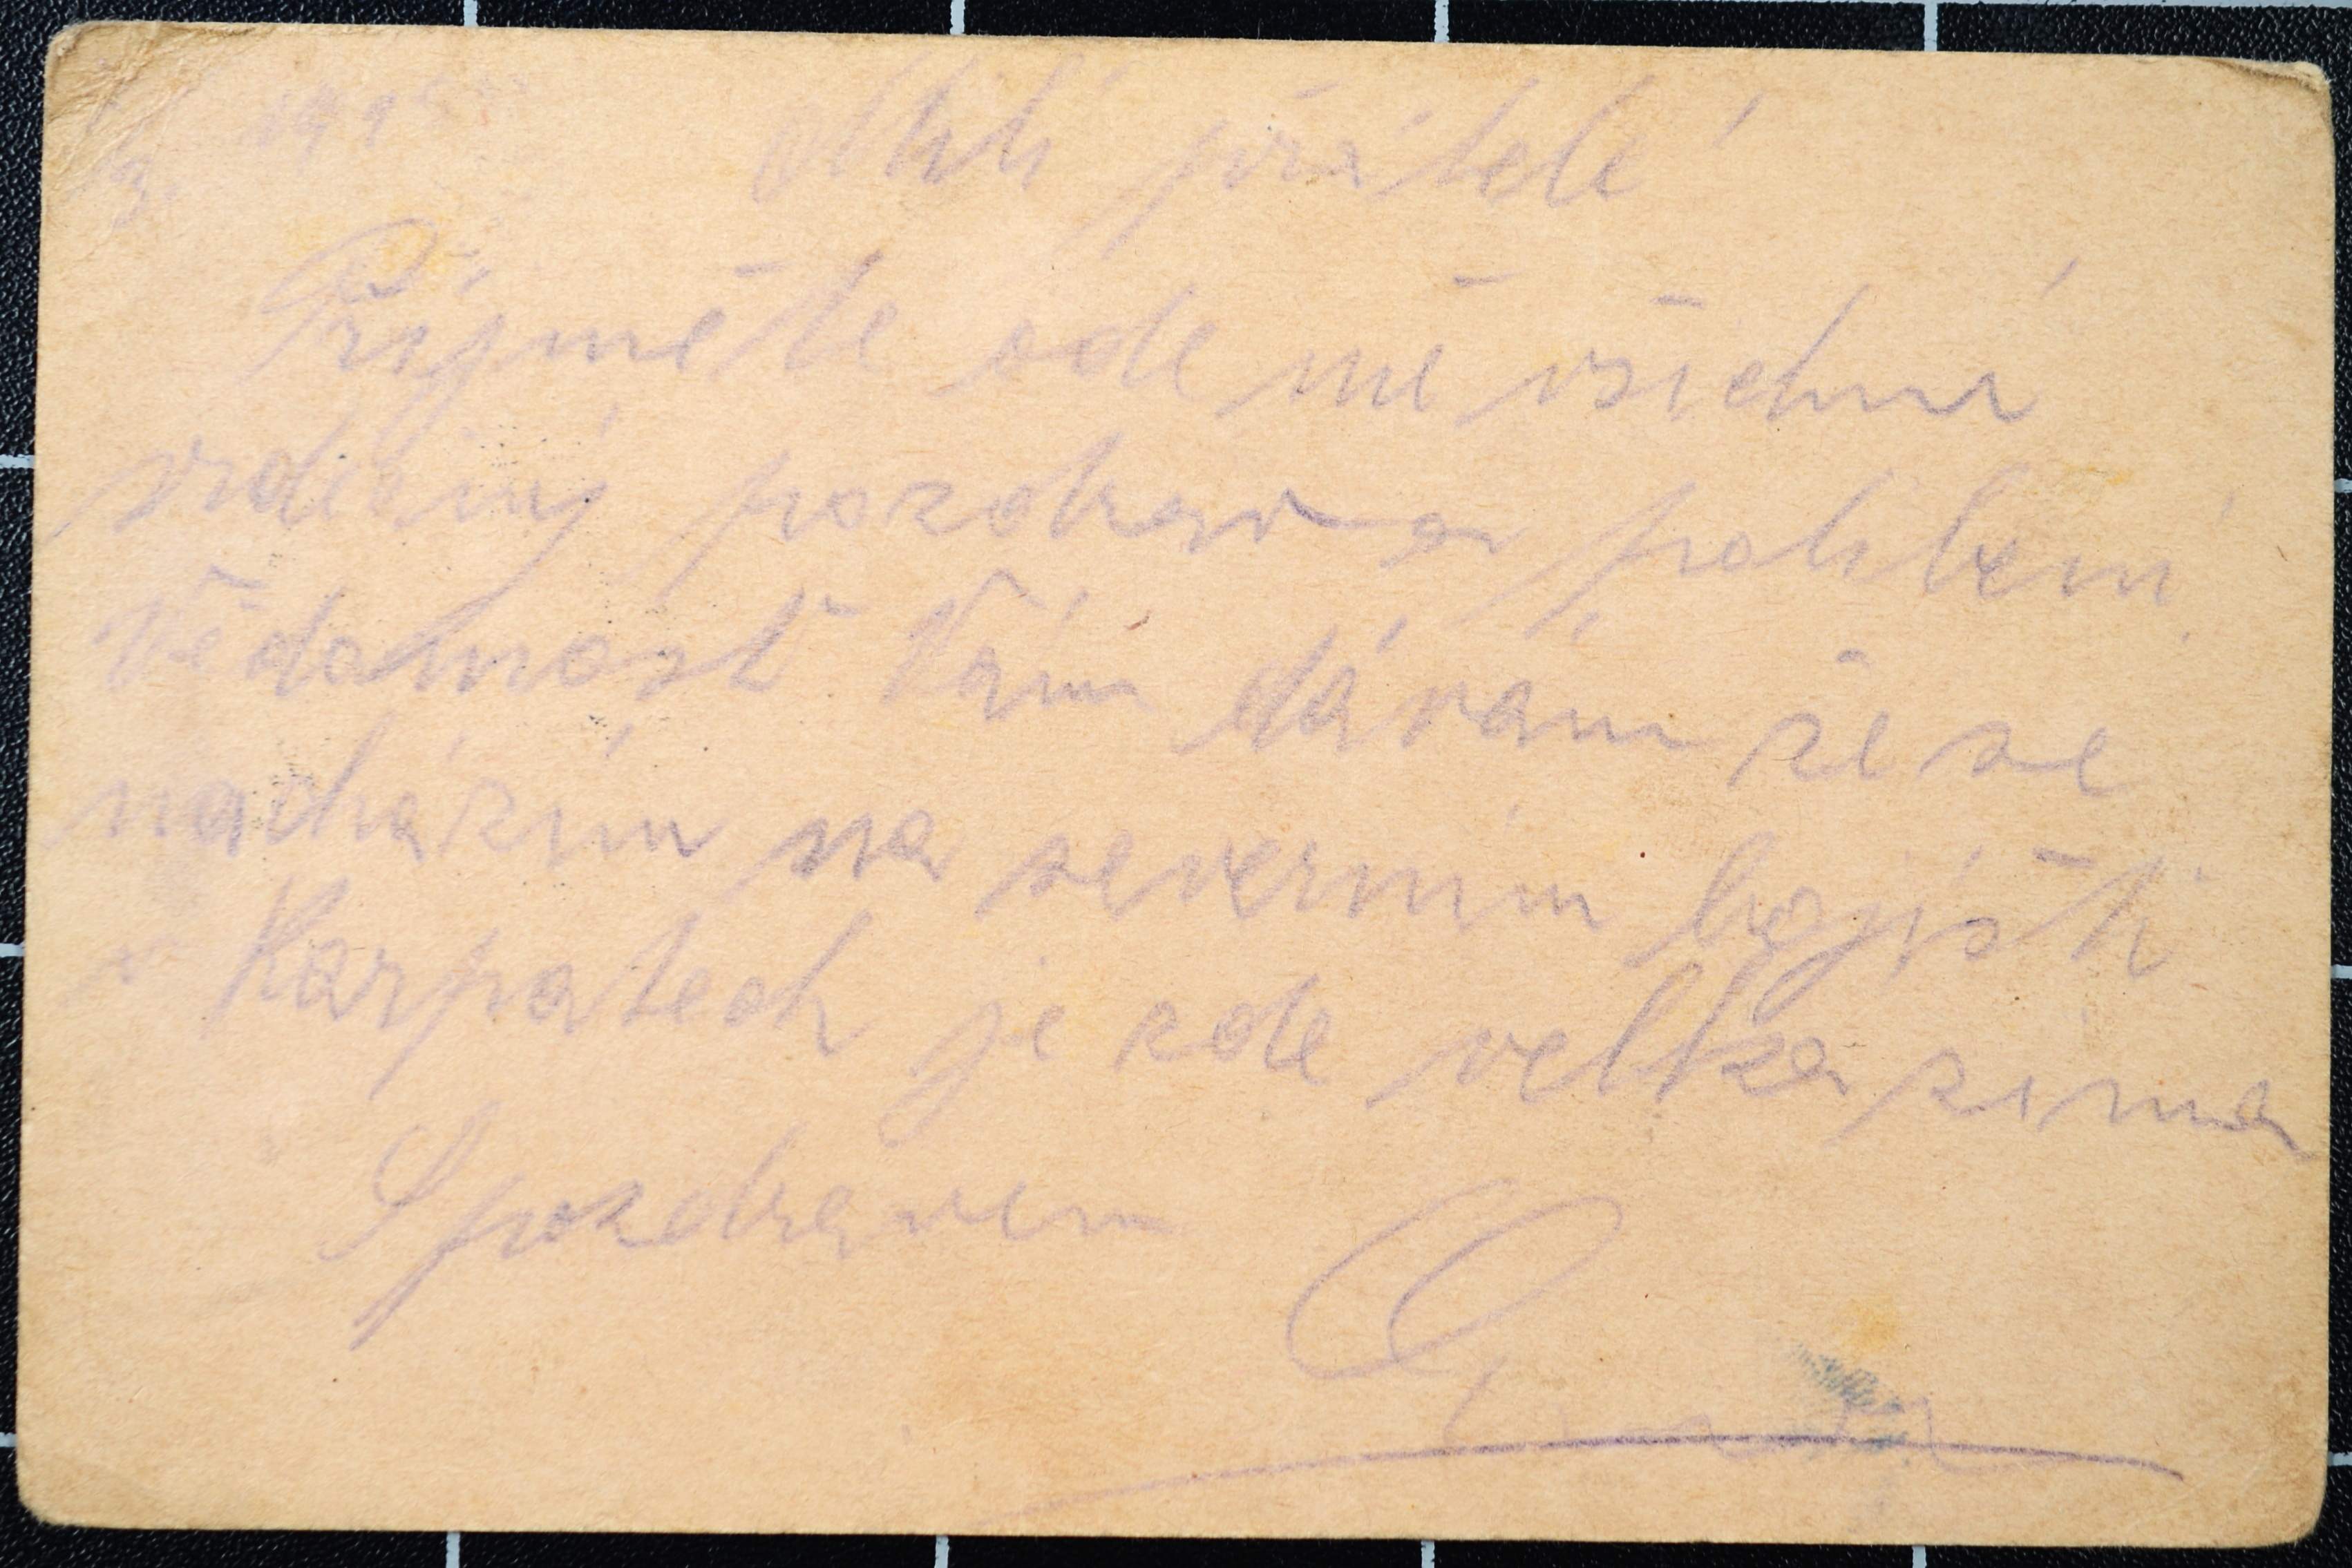 3. 1915
Milí přátelé
Přijměte ode mě všichni
srdečný pozdrav a políbení
Vědomost Vám dávám že se
nacházím na severním bojišti
v Karpatech je zde velká zima
S pozdravem